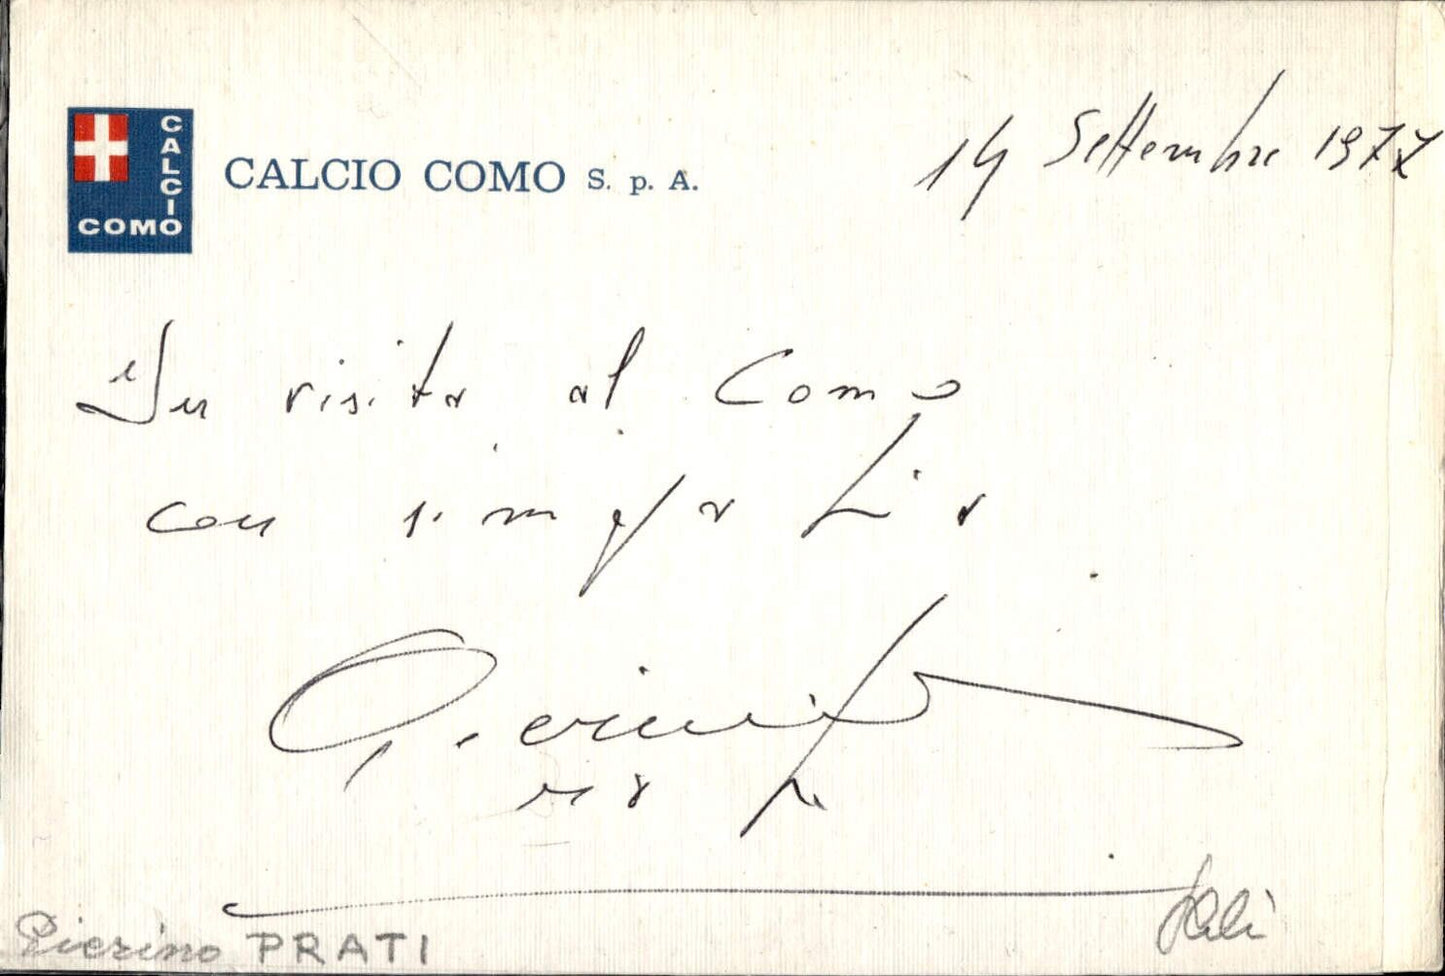 CALCIO
COMO
CALCIO COMO S. p. A.
14 Settembre 1977
In visita al Como
con simpatia
Pierino
Prati
Pierino PRATI